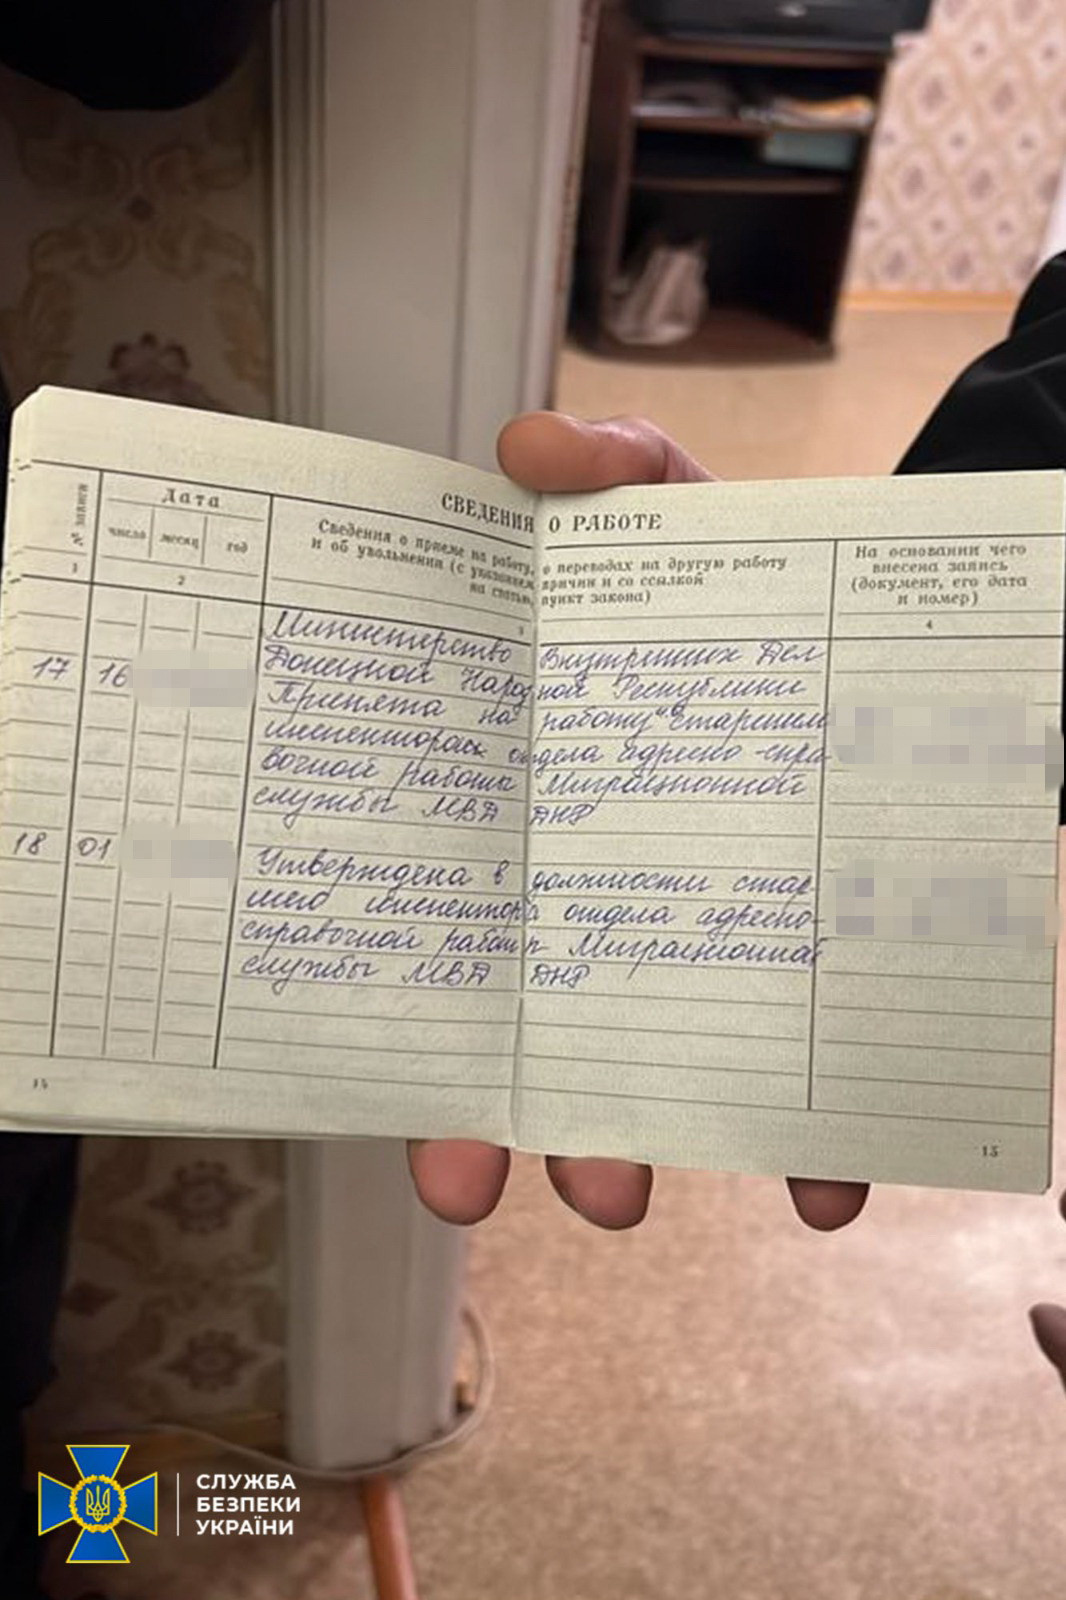 СВЕДЕНИЯ О РАБОТЕ
№ записи
Дата
число месяц год
Сведения о приеме на работу, о переводах на другую работу
и об увольнении (с указанием причин и со ссылкой
на статью, пункт закона)
На основании чего
внесена запись
(документ, его дата
и номер)
1 2 3 4
Министерство Внутренних Дел
Донецкой Народной Республики
17 16 Принята на работу старшим
инспектором отдела адресно-спра-
вочной работы Миграционной
службы МВД ДНР
18 01 Утверждена в должности стар-
шего инспектора отдела адресно-
справочной работы Миграционной
службы МВД ДНР
14
15
СЛУЖБА
БЕЗПЕКИ
УКРАЇНИ